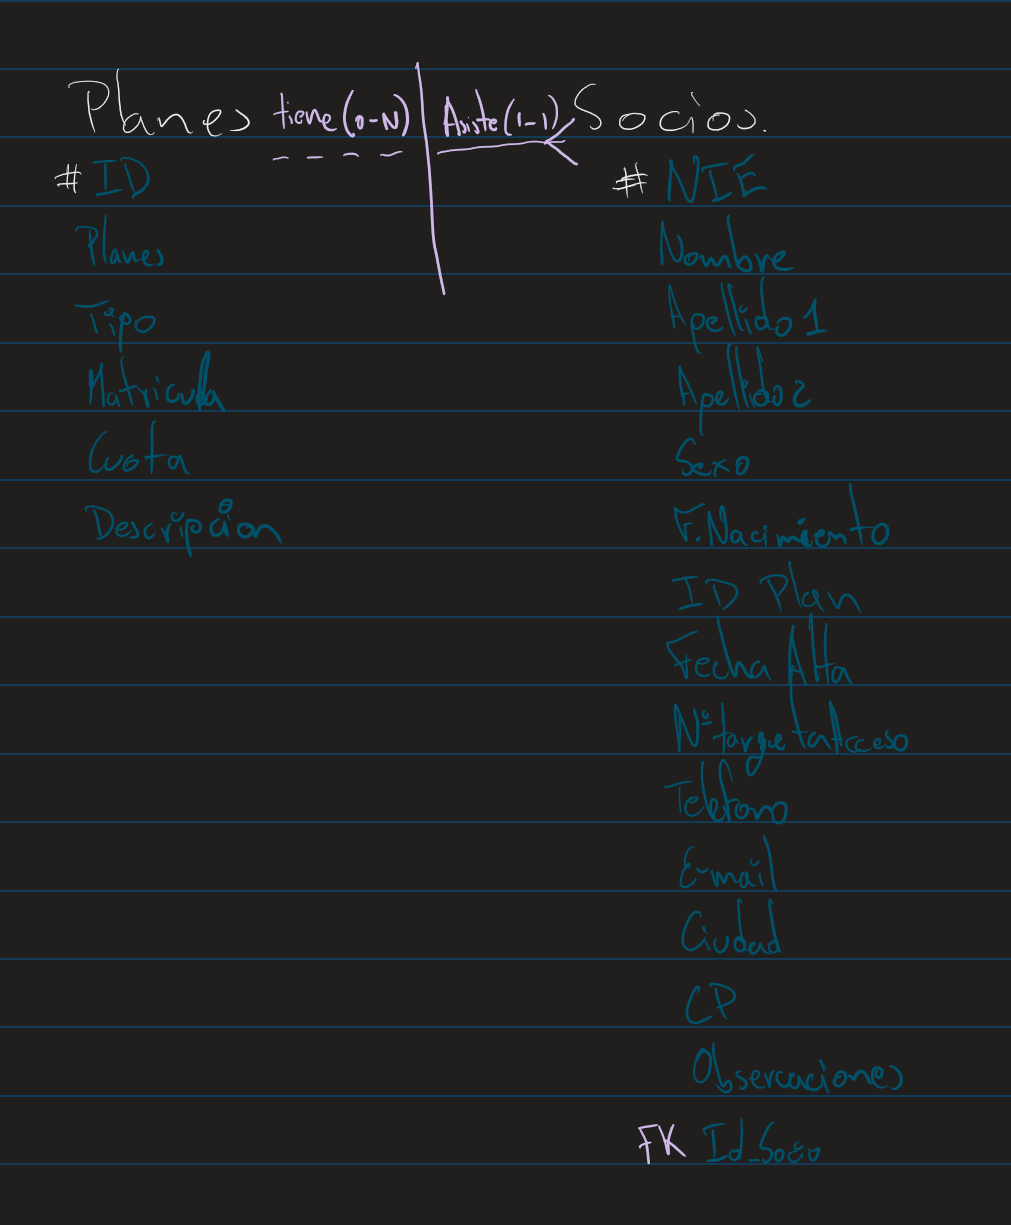 Planes tiene (0-N) Asiste (1-1) Socios.
# ID
Planes
Tipo
Matricula
Cuota
Descripcion
# NIE
Nombre
Apellido 1
Apellido 2
Sexo
F. Nacimiento
ID Plan
Fecha Alta
Nº targetaAcceso
Telefono
E-mail
Ciudad
CP
Observaciones
FK Id_Socio